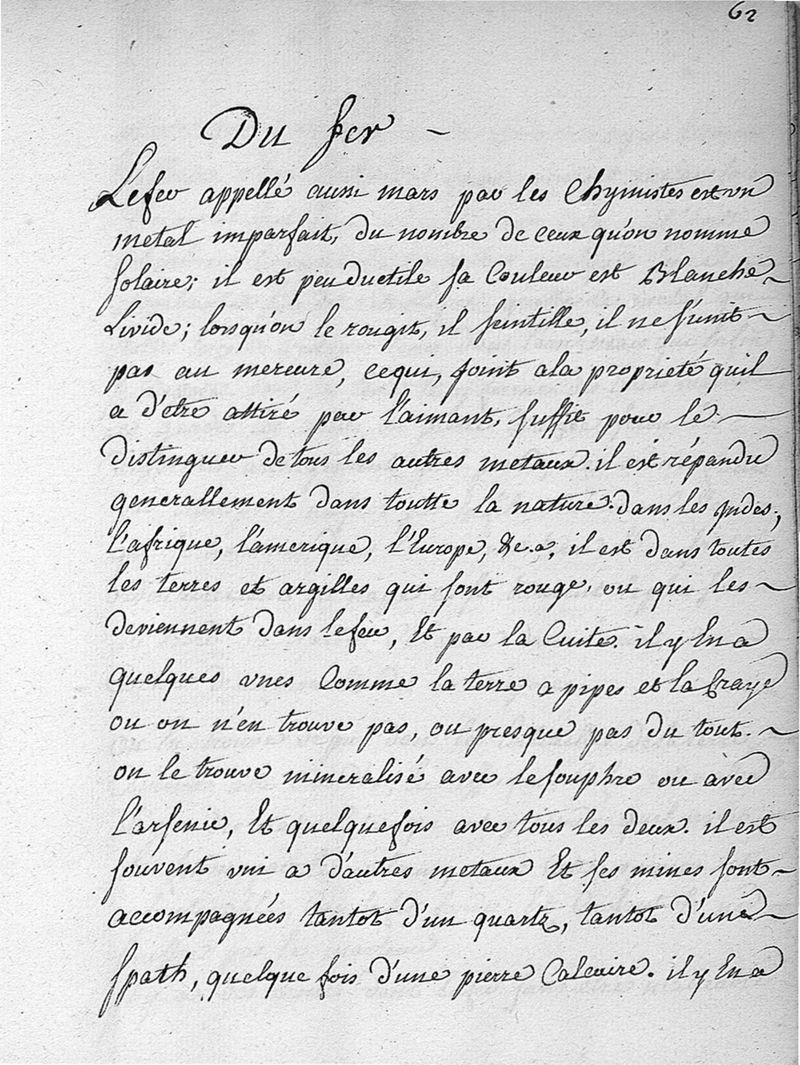 62
Du fer
Le fer appellé aussi mars par les Chymistes est un
metal imparfait, du nombre de ceux qu'on nomme
solaire; il est peu ductile sa Couleur est Blanche
Livide; lorsqu'on le rougit, il seintille, il ne s'unit
pas au mercure, cequi, joint ala proprieté quil
a d'etre attiré par l'aimant, suffit pour le
distinguer de tous les autres metaux. il est répandu
generallement dans toutte la nature. dans les indes,
l'afrique, l'amerique, l'Europe, &c.a, il est dans toutes
les terres et argilles qui sont rouge, ou qui les
deviennent dans le feu, Et par la Cuite. il y En a
quelques unes Comme la terre a pipes et la Craye
ou on n'en trouve pas, ou presque pas du tout.
on le trouve mineralisé avec le souphre ou avec
l'arsenic, Et quelquefois avec tous les deux. il est
souvent uni a d'autres metaux Et ses mines sont
accompagnées tantot d'un quartz, tantot d'une
spath, quelque fois d'une pierre Calcaire. il y En a